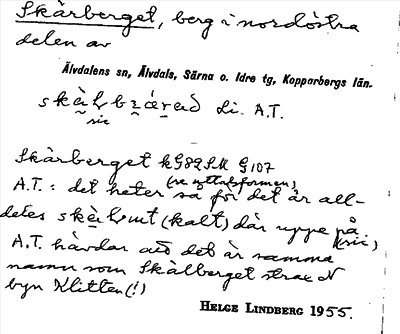 Skärberget, berg i nordöstra
delen av
Älvdalens sn, Älvdals, Särna o. Idre tg, Kopparbergs län.
Li. A.T.
sic
Skärberget kG82SM G107
(se uttalsformen)
A.T.: det heter så för det är all-
deles skallmt (kalt) där uppe på
(sic)
A.T. hävdar att det är samma
namn som Skålberget strax N
byn Klitten (!)
HELGE LINDBERG 1955.